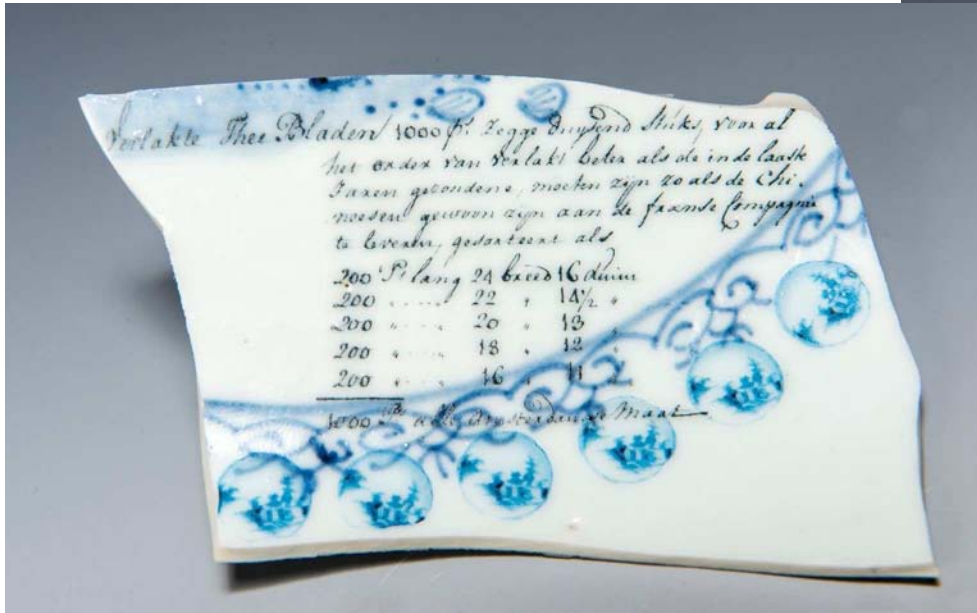 Verlakte Thee Bladen 1000 ps. Zegge duysend stuks, voor al
het order van verlakt beter als de in de laaste
Jaren gezondene, moeten zijn zo als de Chi-
neesen gewoon zijn aan de franse Compagnie
te leveren, gesorteert als
200 Ps lang 24 breed 16 duim
200 " 22 " 14 1/2 "
200 " 20 " 13 "
200 " 18 " 12 "
200 " 16 " 11 "
1000 Ps alle Amsterdamse Maat